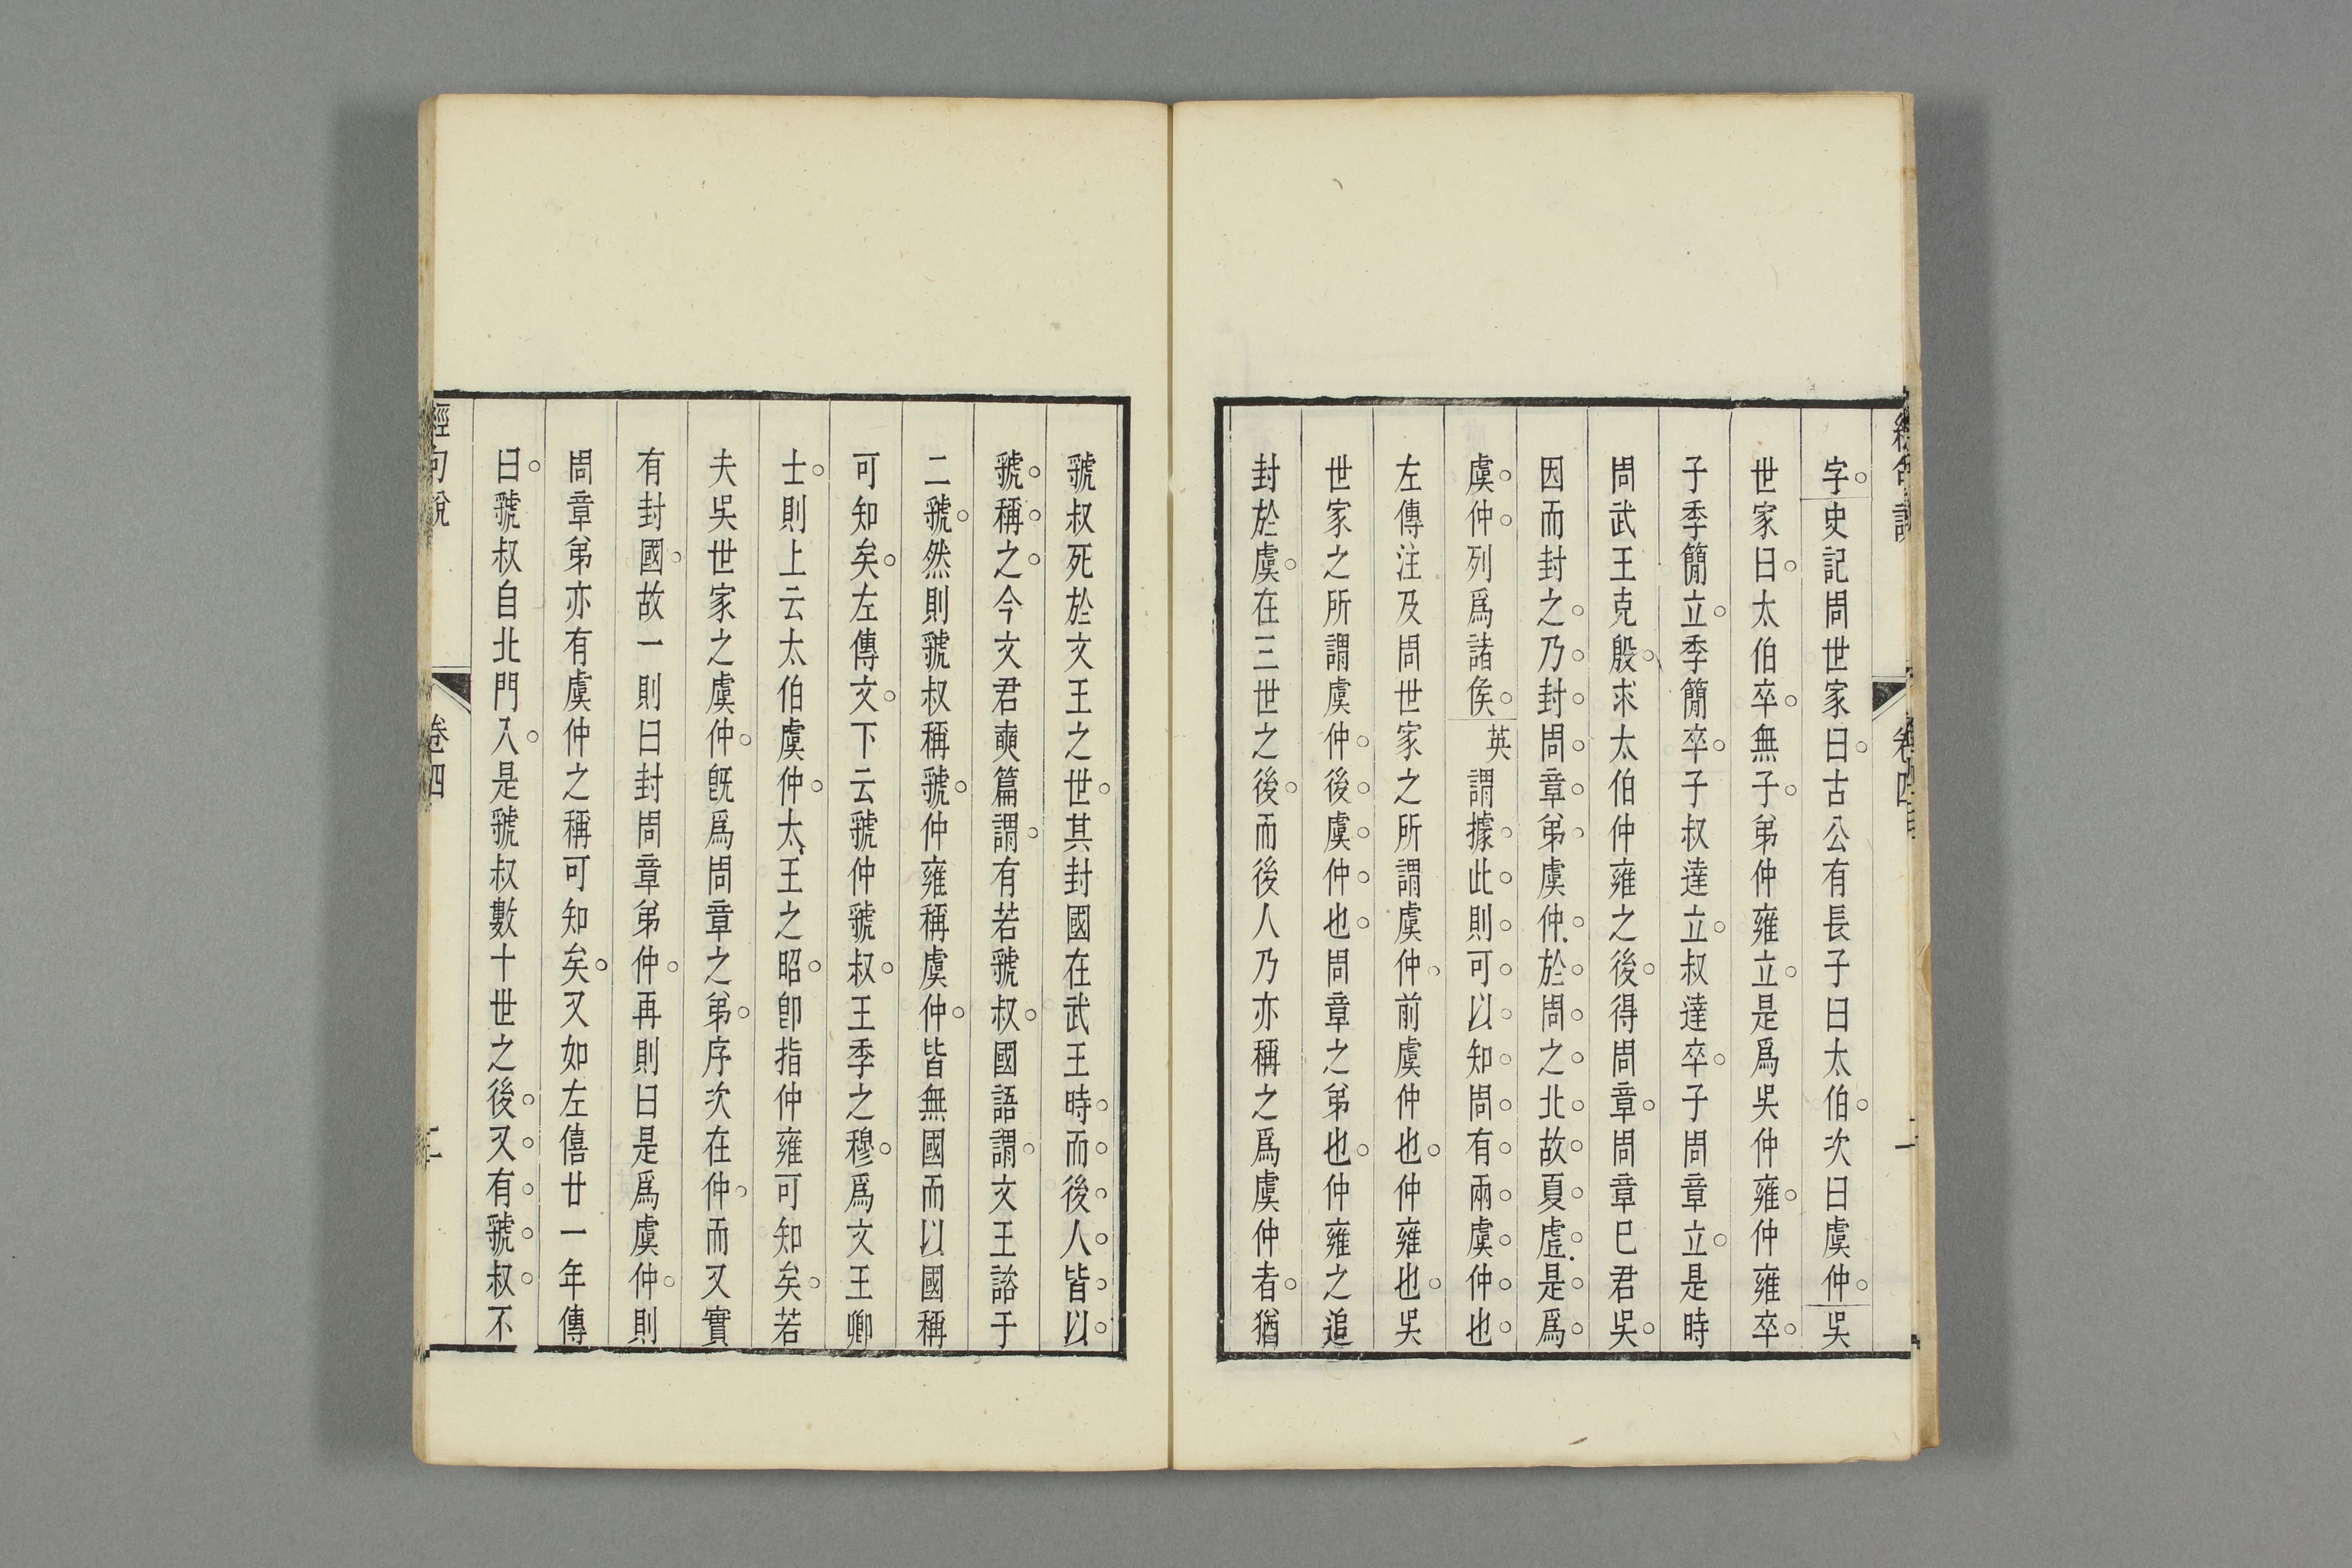 字史記周世家曰古公有長子曰太伯次曰虞仲吳
世家曰太伯卒無子弟仲雍立是爲吳仲雍仲雍卒
子季簡立季簡卒子叔達立叔達卒子周章立是時
周武王克殷求太伯仲雍之後得周章周章巳君吳
因而封之乃封周章弟虞仲於周之北故夏虛是爲
虞仲列爲諸侯英謂據此則可以知周有兩虞仲也
左傳注及周世家之所謂虞仲前虞仲也仲雍也吳
世家之所謂虞仲後虞仲也周章之弟也仲雍之追
封於虞在三世之後而後人乃亦稱之爲虞仲者猶
虢叔死於文王之世其封國在武王時而後人皆以
虢稱之今文君奭篇謂有若虢叔國語謂文王諮于
二虢然則虢叔稱虢仲雍稱虞仲皆無國而以國稱
可知矣左傳文下云虢仲虢叔王季之穆爲文王卿
士則上云太伯虞仲太王之昭卽指仲雍可知矣若
夫吳世家之虞仲旣爲周章之弟序次在仲而又實
有封國故一則曰封周章弟仲再則曰是爲虞仲則
周章弟亦有虞仲之稱可知矣又如左僖廿一年傳
曰虢叔自北門入是虢叔數十世之後又有虢叔不
經句說 卷四 二